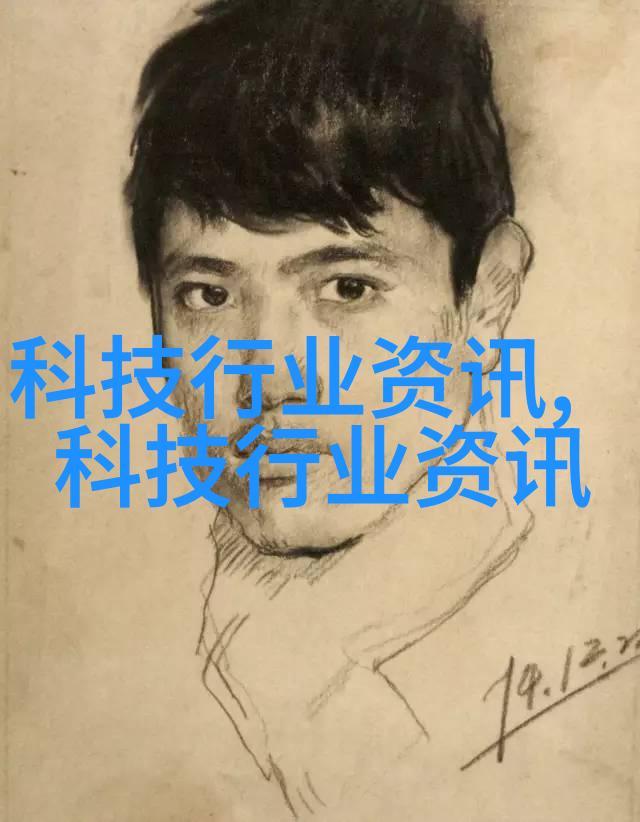 科技行业资讯,
科技行业资讯
14.12.2